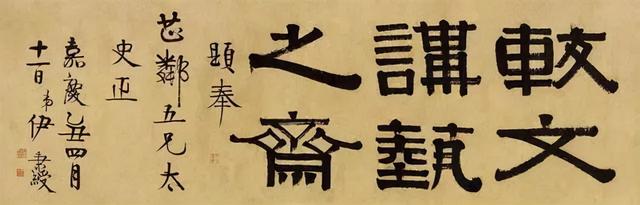 較文
講藝
之齋
題奉
茝鄰五兄太
史正
嘉慶乙丑四月
十一日弟伊秉綬